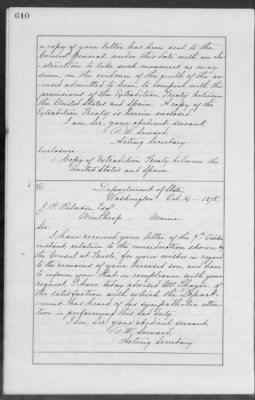 610
a copy of your letter has been sent to the
Consul General under this date with an In-
struction to take such measures as may
seem, on the evidence of the guilt of the ac-
cused admitted to him, to comport with the
provisions of the Extradition Treaty between
the United States and Spain. A copy of the
Extradition Treaty is herein enclosed.
I am, Sir, your obedient servant,
F. W. Seward,
Acting Secretary.
Enclosure.
Copy of Extradition Treaty between the
United States and Spain.
Department of State,
Washington, Oct. 1878.
J. P. Putnam Esqr.
Winthrop - Maine
Sir:
I have received your letter of the 7th October
instant, relative to the consideration shown by
the Consul at for your wishes in regard
to the remains of your deceased son, and have
to inform you that in compliance with your
request, I have today advised Mr. Thayer of
the satisfaction with which the Depart-
ment has heard of his sympathetic atten-
tion in performing this sad duty.
I am, sir, your obedient servant,
F. W. Seward,
Acting Secretary